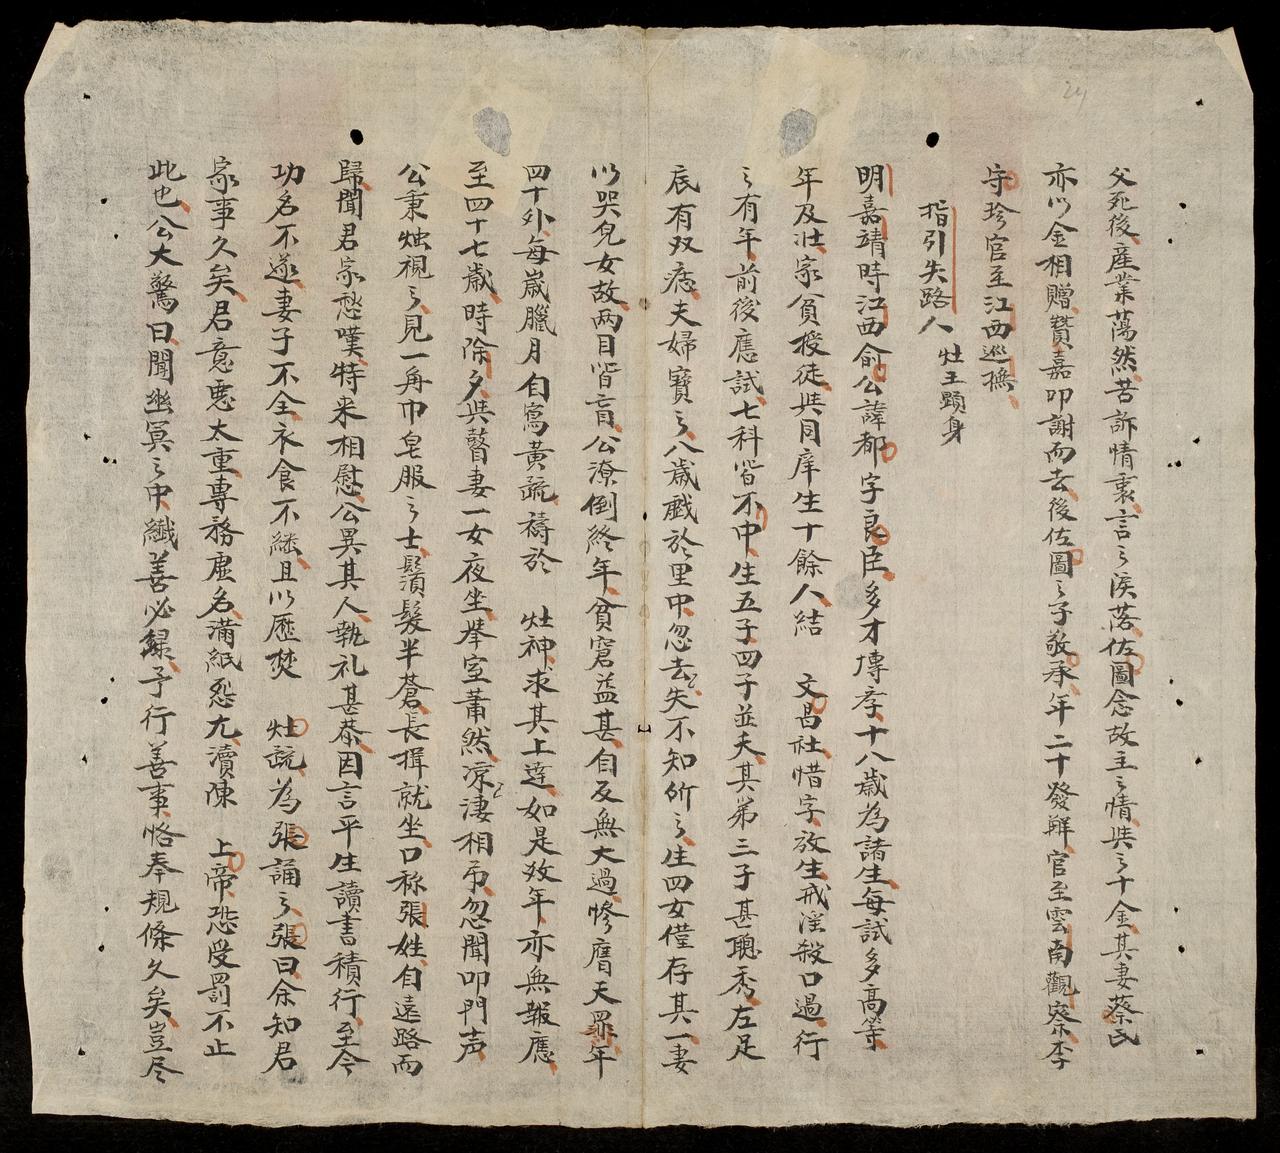 24
父死後產業蕩然苦訴情衷言之淚落佐圖念故主之情共之十金其妻蔡氏
亦以金相贈贊嘉叩謝而去後佐圖之子敬承年二十發解官至雲南觀察李
守珍官至江西巡撫
指引失路人 灶王顕身
明嘉靖時江西俞公諱都字良臣多才博孝十八歲為諸生每試多高等
年及壯家貧授徒共同庠生十餘人結 文昌社惜字放生戒淫殺口過行
之有年前後應試七科皆不中生五子四子並夭其第三子甚聰秀左足
底有双痣夫婦寶之八歲戲於里中忽去失不知所之生四女僅存其一妻
以哭兒女故両目皆盲公潦倒終年貧窘益甚自反無大過慘膺天罪年
四十外每歲臘月自寫黃疏禱於 灶神求其上達如是数年亦無報應
至四十七歲時除夕共瞽妻一女夜坐舉室蕭然凄凉相吊忽聞叩門声
公秉烛視之見一角巾皂服之士鬚髮半蒼長揖就坐口称張姓自遠路而
歸聞君家愁嘆特來相慰公異其人執礼甚恭因言平生讀書積行至今
功名不遂妻子不全衣食不継且以歷焚 灶疏為張誦之張曰余知君
家事久矣君意悪太重專務虛名滿紙怨尤瀆陳 上帝恐受罰不止
此也公大驚曰聞幽冥之中纖善必録予行善事恪奉規條久矣豈尽